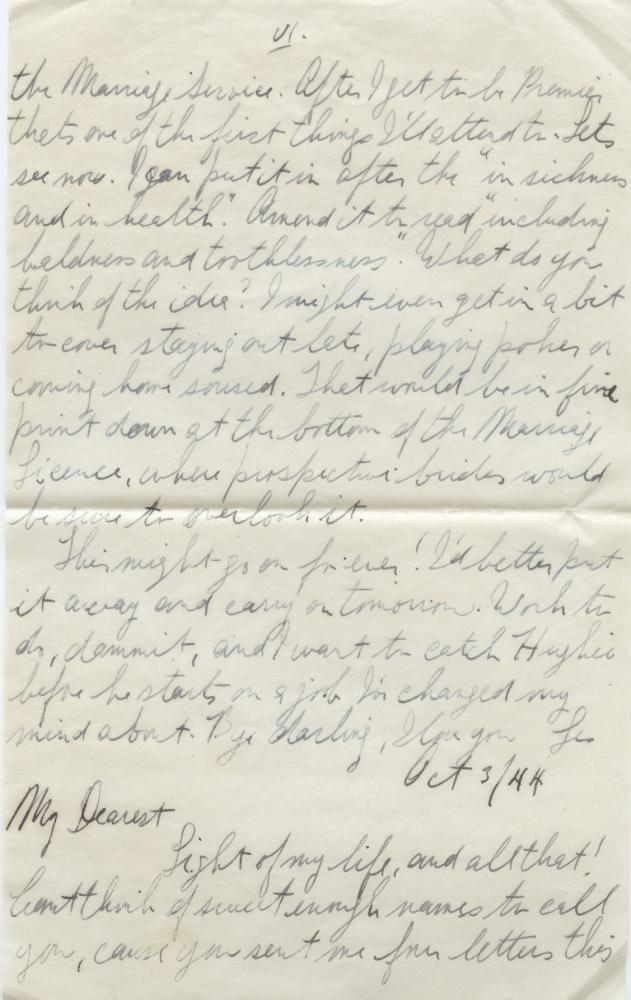 VI.
the Marriage Service. After I get to be Premier
thats one of the first things I'll attend to. Lets
see now. I can put it in after the "in sickness
and in health". Amend it to read "including
baldness and toothlessness." What do you
think of the idea? I might even get in a bit
to cover staying out late, playing poker or
coming home soused. That would be in fine
print down at the bottom of the Marriage
Licence, where prospective brides would
be sure to overlook it.
This might go on forever! I'd better put
it away and carry on tomorrow. Work to
do, dammit, and I want to catch Hughie
before he starts on a job I've changed my
mind about. Bye darling, I love you Les
Oct 3/44
My Dearest
Light of my life, and all that!
Can't think of sweet enough names to call
you, cause you sent me four letters this